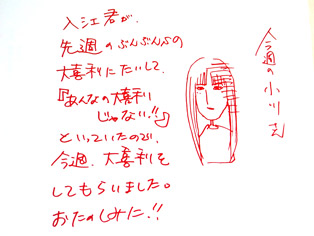 入江君が、
先週のぶんぶんぶの
大喜利にたいして、
『あんなの大喜利
じゃない!!』
といっていたので、
今週、大喜利を
してもらいました。
おたのしみに!!
今週の小川さん